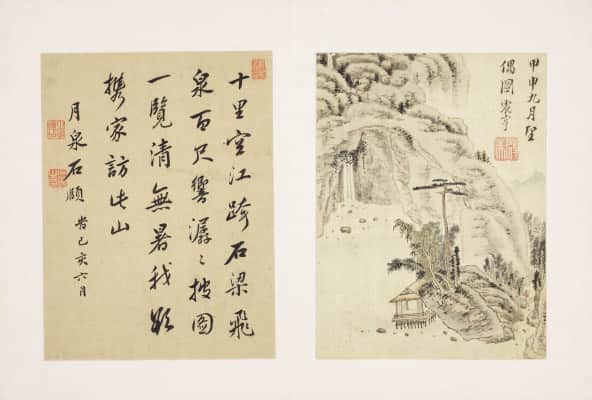 甲申九月望
偶圖
十里空江跨石梁飛
泉百尺響潺〻披圖
一覽清無暑我欲
攜家訪此山
月泉石頤 旹己亥六月